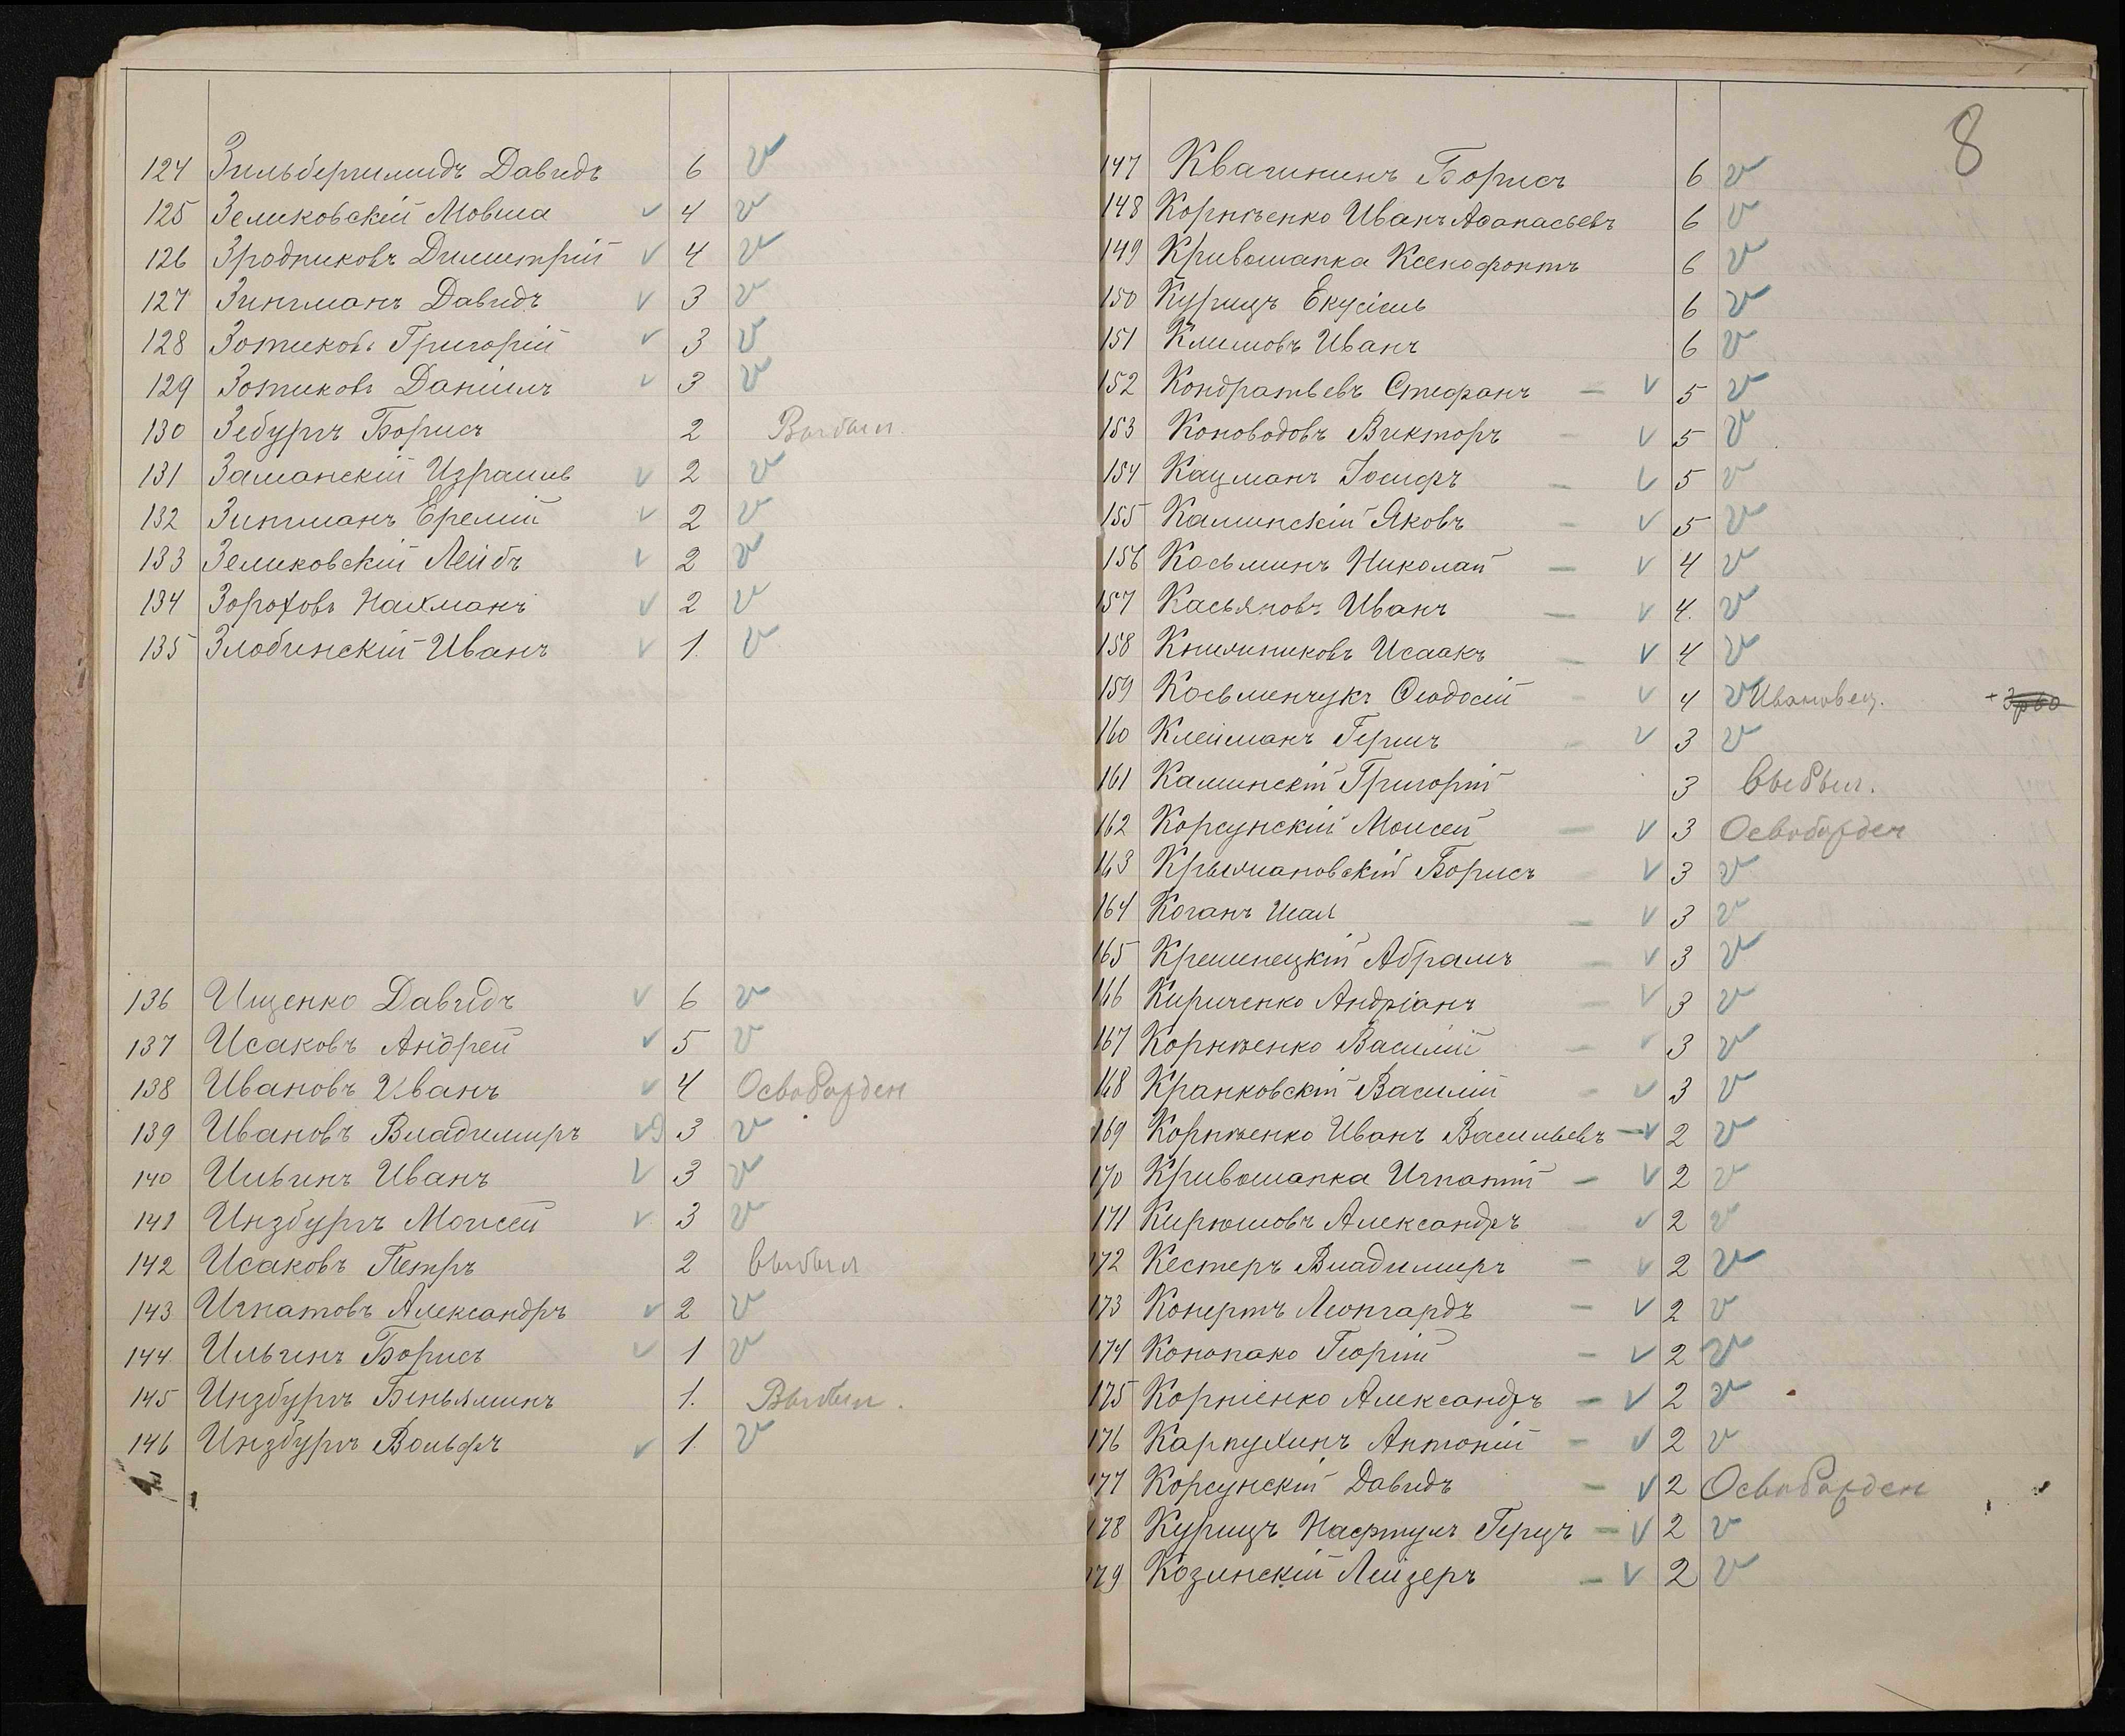 124 Зильбершмидъ Давидъ 6 v
125 Зеликовскій Мовша v 4 v
126 Зродниковъ Димитрій v 4 v
127 Зингманъ Давидъ v 3 v
128 Зотиковъ Григорій v 3 v
129 Зотиковъ Даніилъ v 3 v
130 Зебургъ Борисъ 2 Выбыл.
131 Заманскій Израиль v 2 v
132 Зингманъ Еремій v 2 v
133 Зеликовскій Лейбъ v 2 v
134 Зороховъ Нахманъ v 2 v
135 Злобинскій Иванъ v 1. v
136 Ищенко Давидъ v 6 v
137 Исаковъ Андрей v 5 v
138 Ивановъ Иванъ v 4 Освобожден
139 Ивановъ Владимиръ v 3 v
140 Ильинъ Иванъ v 3 v
141 Инзбургъ Моисей v 3 v
142 Исаковъ Петръ 2 выбыл
143 Игнатовъ Александръ v 2 v
144. Ильинъ Борисъ v 1 v
145 Инзбургъ Беньяминъ 1. Выбыл.
146 Инзбургъ Вольфъ v 1. v
8
147 Квагининъ Борисъ 6 v
148 Корнѣенко Иванъ Афанасьевъ 6 v
149 Кривошапка Ксенофонтъ 6 v
150 Курицъ Екусіель 6 v
151 Климовъ Иванъ 6 v
152 Кондратьевъ Стефанъ – v 5 v
153 Коноводовъ Викторъ – v 5 v
154 Кацманъ Іосифъ – v 5 v
155 Калинскій Яковъ – v 5 v
156 Косьминъ Николай – v 4 v
157 Касьяновъ Иванъ – v 4. v
158 Исаакъ – v 4 v
159 Косьминчукъ Ѳеодосій – v 4 v Ивановец.
160 Клейманъ Гершъ – v 3 v
161 Каминскій Григорій 3 выбыл.
162 Корсунскій Моисей – v 3 Освобожден
163 Крыжановскій Борисъ – v 3 v
164 Коганъ Шая – v 3 v
165 Кременецкій Абрамъ – v 3 v
166 Кириченко Андріанъ – v 3 v
167 Корнѣенко Василій – v 3 v
168 Кранковскій Василій – v 3 v
169 Корнѣенко Иванъ Васильевъ – v 2 v
170 Кривошапка Игнатій – v 2 v
171 Кирюшовъ Александръ v 2 v
172 Кестеръ Владимиръ – v 2 v
173 Конертъ Леонгардъ – v 2 v
174 Конопако Георгій – v 2 v
175 Корніенко Александръ – v 2 v
176 Карпухинъ Антоній – v 2 v
177 Корсунскій Давидъ – v 2 Освобожден
178 Курицъ Нафтулъ Герцъ – v 2 v
179 Козинскій Лейзеръ – v 2 v